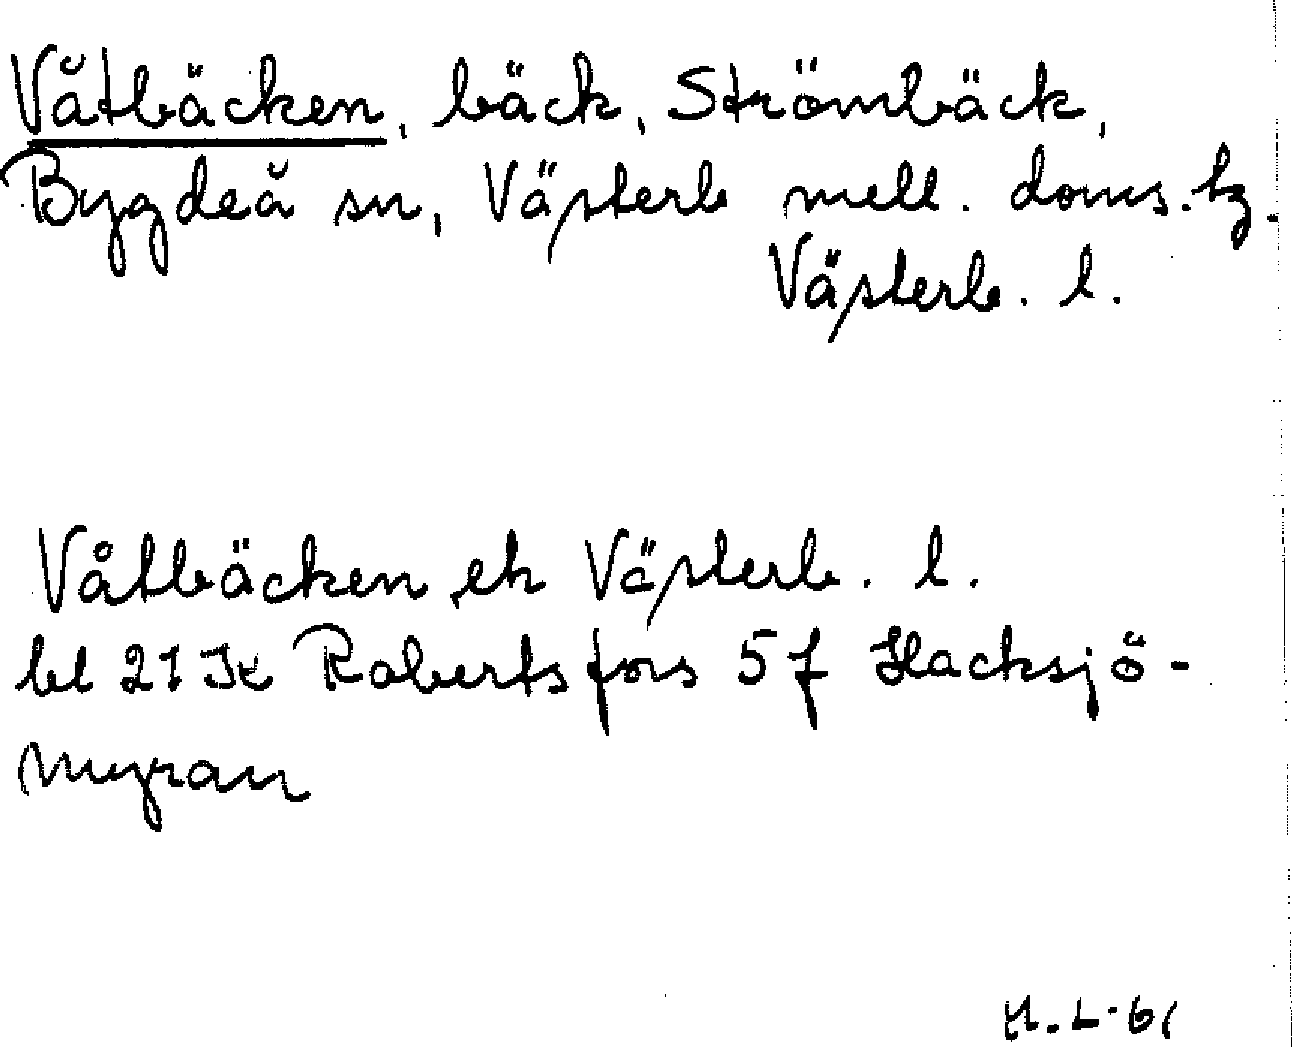 Våtbäcken, bäck, Strömbäck,
Bygdeå sn, Västerb mell. doms. tg.
Västerb. l.
Våtbäcken ek Västerb. l.
bl 21 K Robertsfors 5 f Hacksjö-
myran
H.L-61